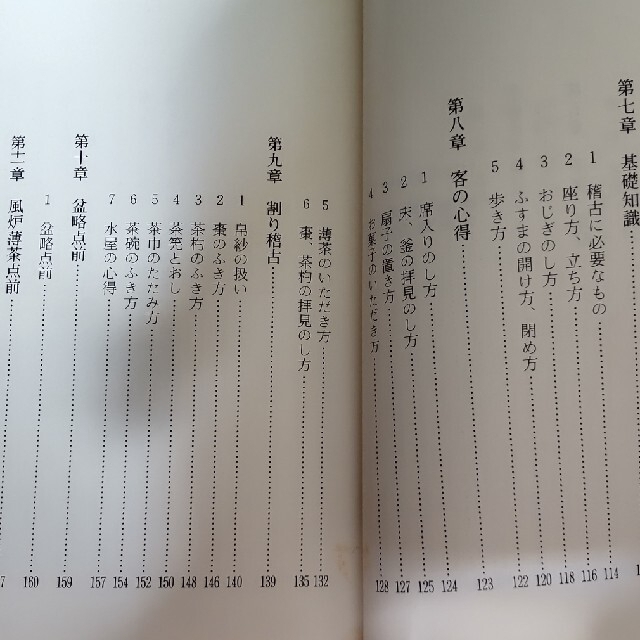 第七章 基礎知識
1 稽古に必要なもの……114
2 座り方、立ち方……116
3 おじぎのし方……118
4 ふすまの開け方、閉め方……120
5 歩き方……122
第八章 客の心得……123
1 席入りのし方……124
2 床、釜の拝見のし方……125
3 扇子の置き方……127
4 お菓子のいただき方……128
5 薄茶のいただき方……132
6 棗、茶杓の拝見のし方……135
第九章 割り稽古……139
1 帛紗の扱い……140
2 棗のふき方……146
3 茶杓のふき方……148
4 茶筅とおし……150
5 茶巾のたたみ方……152
6 茶碗のふき方……154
7 水屋の心得……157
第十章 盆略点前……159
1 盆略点前……160
第十一章 風炉薄茶点前……